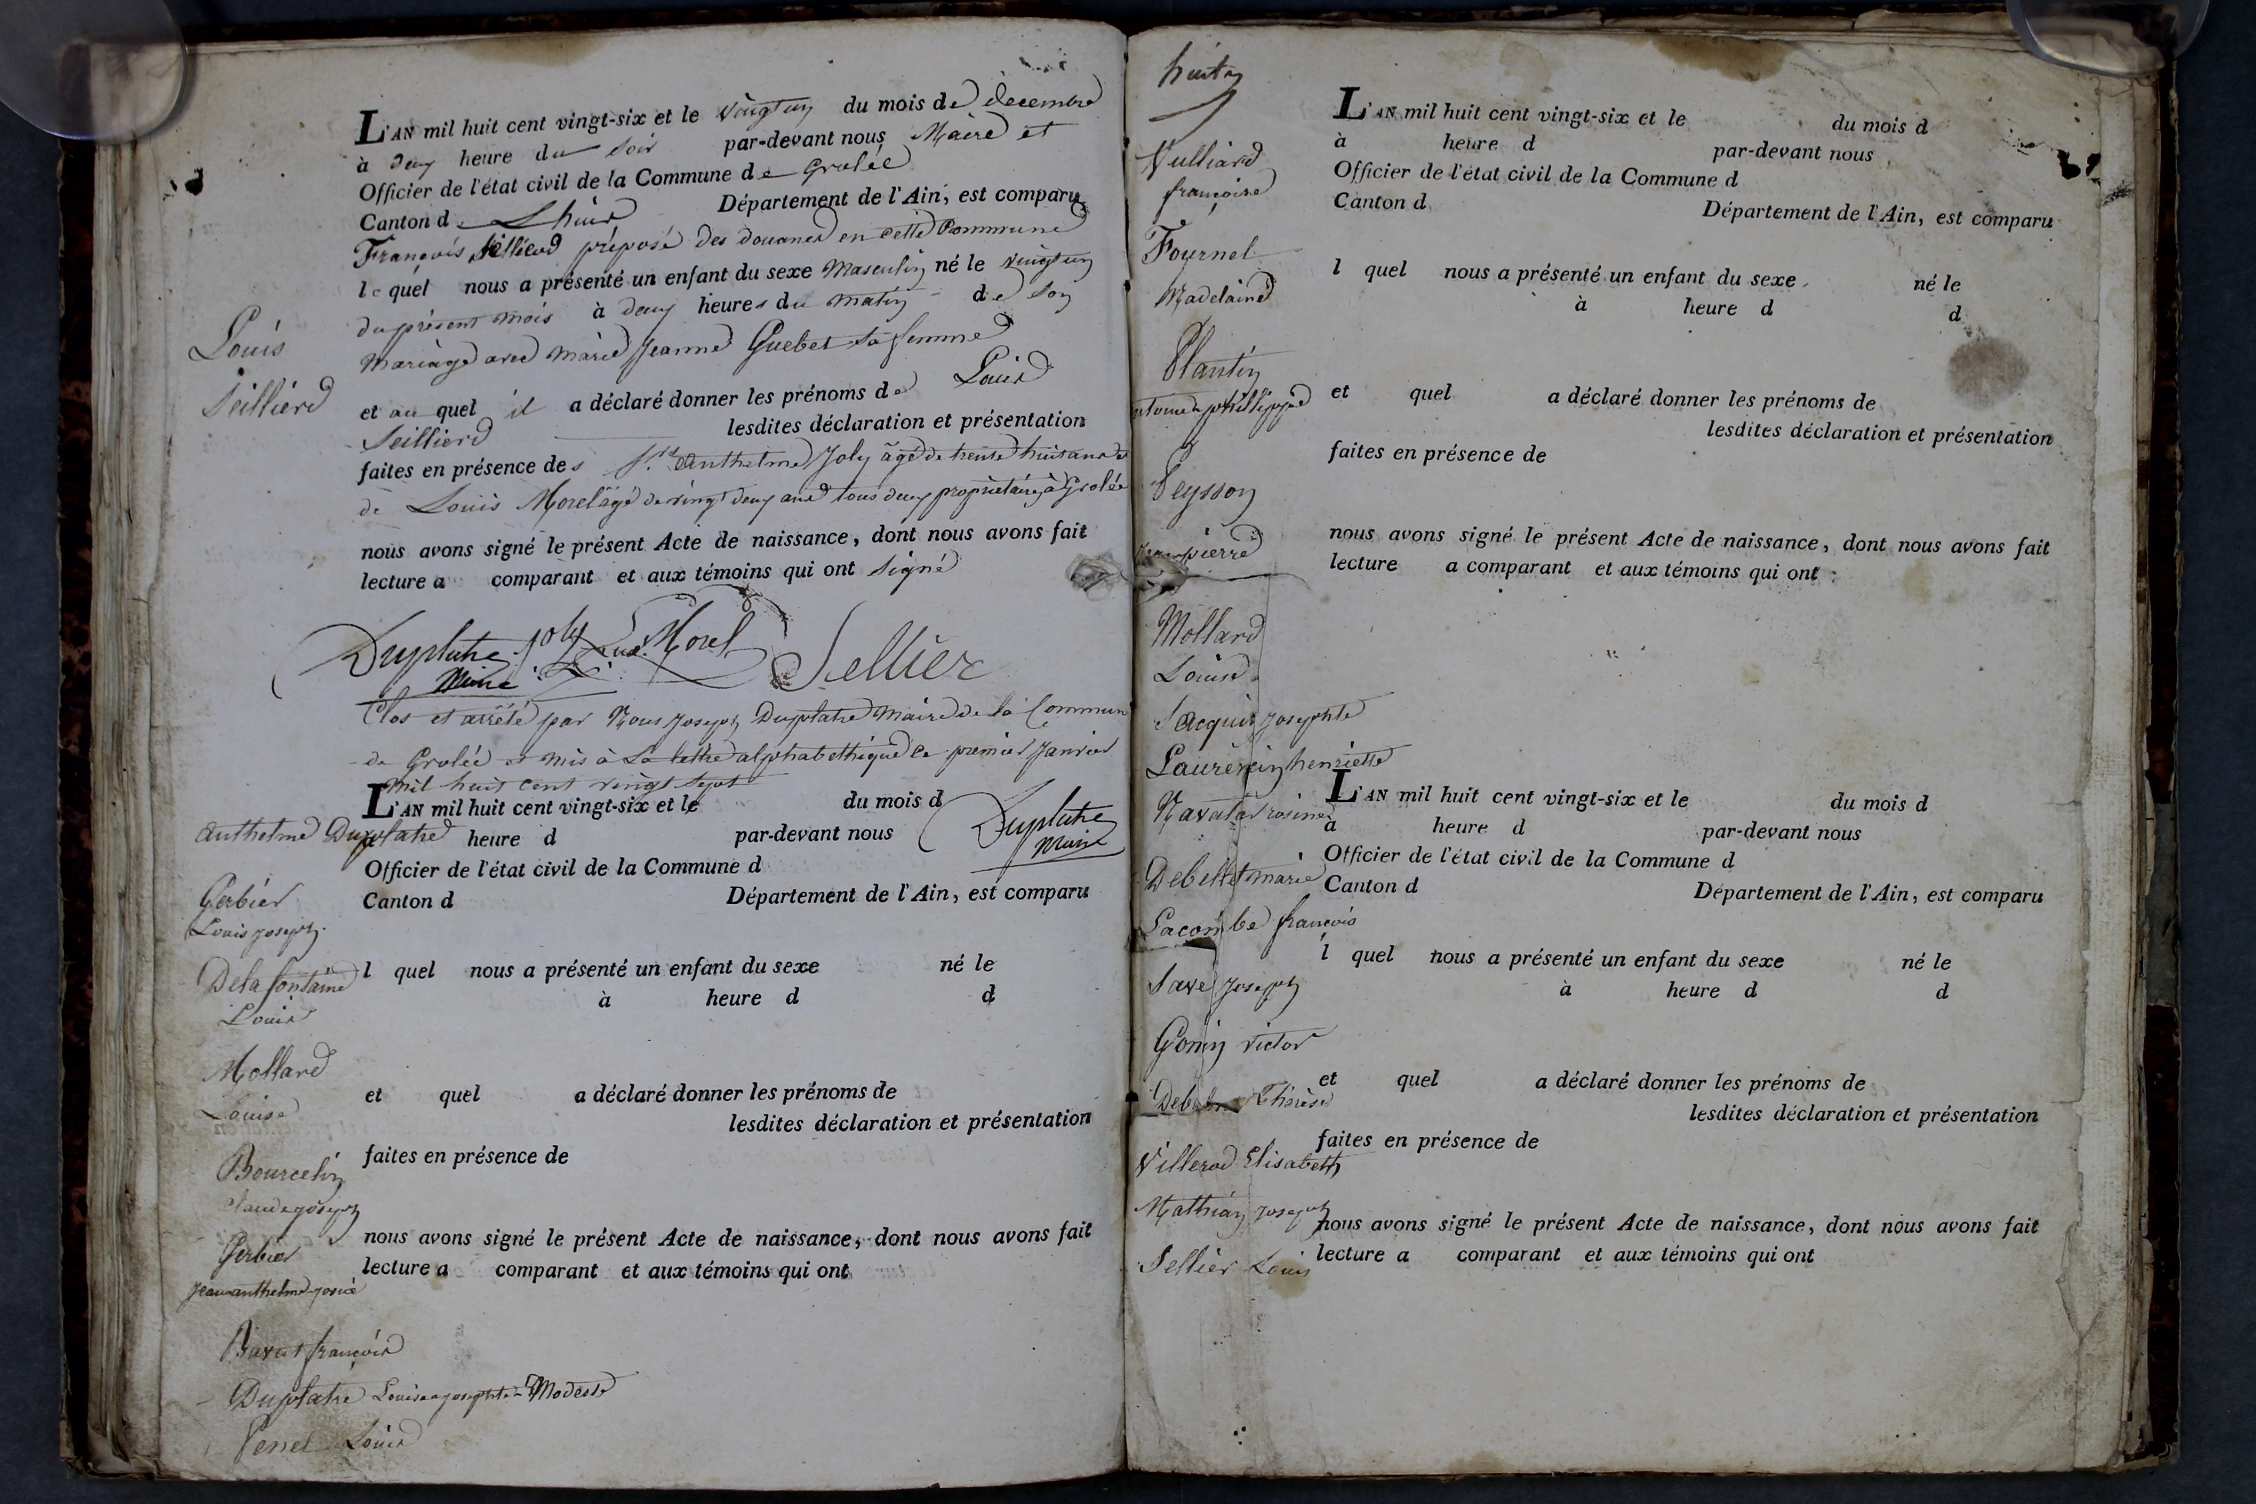 L'AN mil huit cent vingt-six et le vingt un du mois de decembre
à deux heure du soir par-devant nous Maire et
Officier de l'état civil de la Commune de Grolée
Canton de Lhuis Département de l'Ain, est comparu
François Sellier préposé des douanes en cette Commune
lequel nous a présenté un enfant du sexe Masculin né le vingt un
du présent mois à deux heures du matin de son
mariage avec marie Jeanne Guebet sa femme
Louis
Seillierd
et au quel il a déclaré donner les prénoms de Louis
Seillierd lesdites déclaration et présentation
faites en présence des Srs Anthelme Joly âgé de trente huit ans et
de Louis Morel âgé de vingt deux ans tous deux propriétaires à Grolée
nous avons signé le présent Acte de naissance, dont nous avons fait
lecture a comparant et aux témoins qui ont signé
Duplatre Joly Morel Sellier
Maire
Clos et arrêté par Nous Joseph Duplatre Maire de la Commun
de Grolée et mis à La lettre alphabethique ce premier Janvier
mil huit cent vingt sept
L'AN mil huit cent vingt-six et le du mois d
Duplatre
Maire
anthelme Duplatre heure d par-devant nous
Officier de l'état civil de la Commune d
Canton d Département de l'Ain, est comparu
Gerbier
Louis joseph
Delafontaine
Louis
l quel nous a présenté un enfant du sexe né le
à heure d d
Mollard
Louise
et quel a déclaré donner les prénoms de
lesdites déclaration et présentation
Bourcelin
Claude joseph
faites en présence de
Gerbier
Jean anthelme josué
nous avons signé le présent Acte de naissance, dont nous avons fait
lecture a comparant et aux témoins qui ont
Bavut françois
Duplatre Louise josephte Modeste
Penel Louis
huit
Vulliard
françoise
Fournel
Madelaine
Plantin
phillippe
Peysson
pierre
Mollard
Louise
Jacquin josephte
Laurencin henriette
Navatar rosine
Debellet marie
Lacombe françois
Save Joseph
Gonin victor
Thérèse
Villerod Elisabeth
Mathian Joseph
Sellier Louis
L'AN mil huit cent vingt-six et le du mois d
à heure d par-devant nous
Officier de l'état civil de la Commune d
Canton d Département de l'Ain, est comparu
l quel nous a présenté un enfant du sexe né le
à heure d d
et quel a déclaré donner les prénoms de
lesdites déclaration et présentation
faites en présence de
nous avons signé le présent Acte de naissance, dont nous avons fait
lecture a comparant et aux témoins qui ont
L'AN mil huit cent vingt-six et le du mois d
à heure d par-devant nous
Officier de l'état civil de la Commune d
Canton d Département de l'Ain, est comparu
l quel nous a présenté un enfant du sexe né le
à heure d d
et quel a déclaré donner les prénoms de
lesdites déclaration et présentation
faites en présence de
nous avons signé le présent Acte de naissance, dont nous avons fait
lecture a comparant et aux témoins qui ont